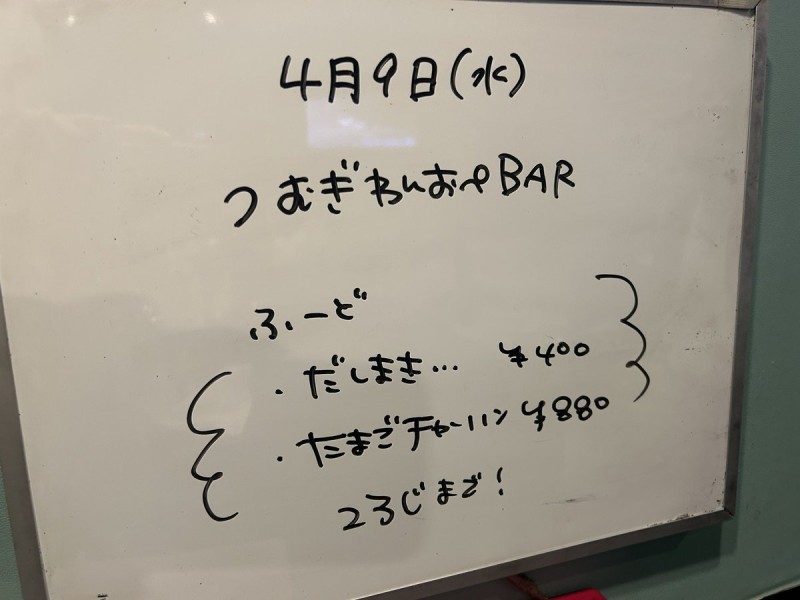 4月9日(水)
つむぎわんおぺBAR
ふーど
・だしまき… ¥400
・たまごチャーハン ¥880
23じまで!